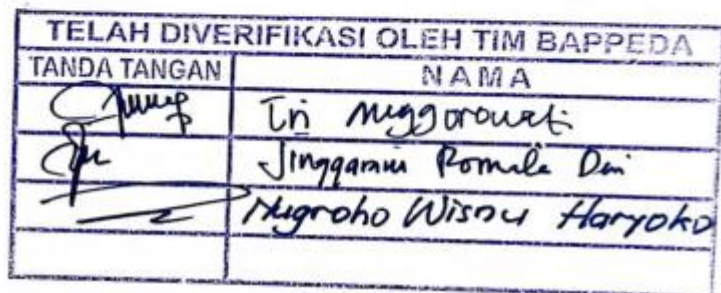 TELAH DIVERIFIKASI OLEH TIM BAPPEDA
TANDA TANGAN NAMA
Tri Nuggorowati
Jinggarani Romala Dwi
Nugroho Wisnu Haryoko